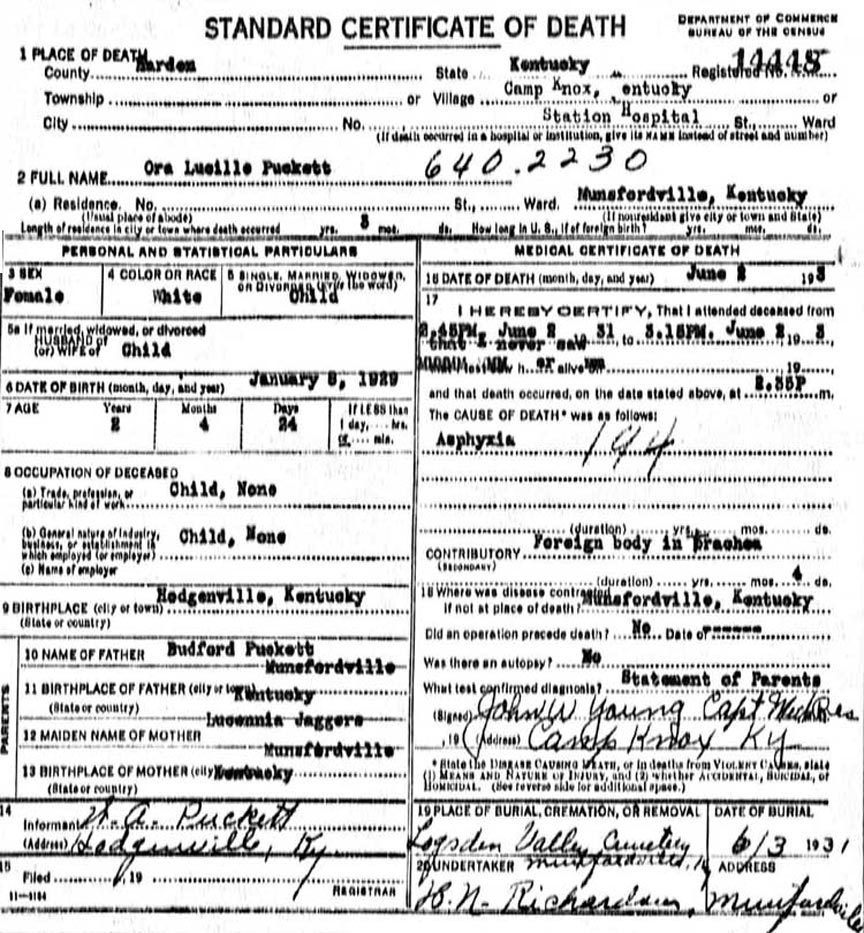 STANDARD CERTIFICATE OF DEATH
DEPARTMENT OF COMMERCE
BUREAU OF THE CENSUS
1 PLACE OF DEATH
County Harden State Kentucky Registered No. 14448
Township or Village Camp Knox, entucky or
City No. Station Hospital St., Ward
(If death occurred in a hospital or institution, give its NAME instead of street and number)
2 FULL NAME Ora Lucille Puckett 640.2230
(a) Residence. No. St., Ward. Munsfordville, Kentucky
(Usual place of abode) (If nonresident give city or town and State)
Length of residence in city or town where death occurred yrs. mos. ds. How long in U. S., if of foreign birth? yrs. mos. ds.
PERSONAL AND STATISTICAL PARTICULARS
3 SEX
Female
4 COLOR OR RACE
White
5 SINGLE, MARRIED, WIDOWED, OR DIVORCED (write the word)
Child
5a If married, widowed, or divorced
HUSBAND of
(or) WIFE of Child
6 DATE OF BIRTH (month, day, and year) January 8, 1929
7 AGE Years Months Days If LESS than
2 4 24 1 day, hrs.
or min.
8 OCCUPATION OF DECEASED
(a) Trade, profession, or
particular kind of work Child, None
(b) General nature of industry,
business, or establishment in
which employed (or employer) Child, None
(c) Name of employer
9 BIRTHPLACE (city or town) Hodgenville, Kentucky
(State or country)
PARENTS
10 NAME OF FATHER Budford Puckett
Munsfordville
11 BIRTHPLACE OF FATHER (city or town) Kentucky
(State or country)
Lucennia Jaggers
12 MAIDEN NAME OF MOTHER
Munsfordville
13 BIRTHPLACE OF MOTHER (city Kentucky
(State or country)
14
Informant W. A. Puckett
(Address) Hodgenville, Ky.
15
Filed , 19
REGISTRAR
11-3184
MEDICAL CERTIFICATE OF DEATH
16 DATE OF DEATH (month, day, and year) June 2 193
17
I HEREBY CERTIFY, That I attended deceased from
2.45PM, June 2 31, to 3.15PM. June 2, 19 3
that I never saw h or alive 19
and that death occurred, on the date stated above, at 2.55P m.
The CAUSE OF DEATH* was as follows:
Asphyxia 194
(duration) yrs. mos. ds.
CONTRIBUTORY Foreign body in Trachea
(SECONDARY)
(duration) yrs. mos. 4 ds.
18 Where was disease contracted
if not at place of death? Munsfordville, Kentucky
Did an operation precede death? No Date of ------
Was there an autopsy? No
What test confirmed diagnosis? Statement of Parents
(Signed) John W Young Capt Med Res
, 19 (Address) Camp Knox Ky
* State the DISEASE CAUSING DEATH, or in deaths from VIOLENT CAUSES, state
(1) MEANS AND NATURE OF INJURY, and (2) whether ACCIDENTAL, SUICIDAL, or
HOMICIDAL. (See reverse side for additional space.)
19 PLACE OF BURIAL, CREMATION, OR REMOVAL
Logsden Valley Cemetery
Munfordville, Ky
DATE OF BURIAL
6/3 1931
20 UNDERTAKER
H. N. Richardson
ADDRESS
Munfordville